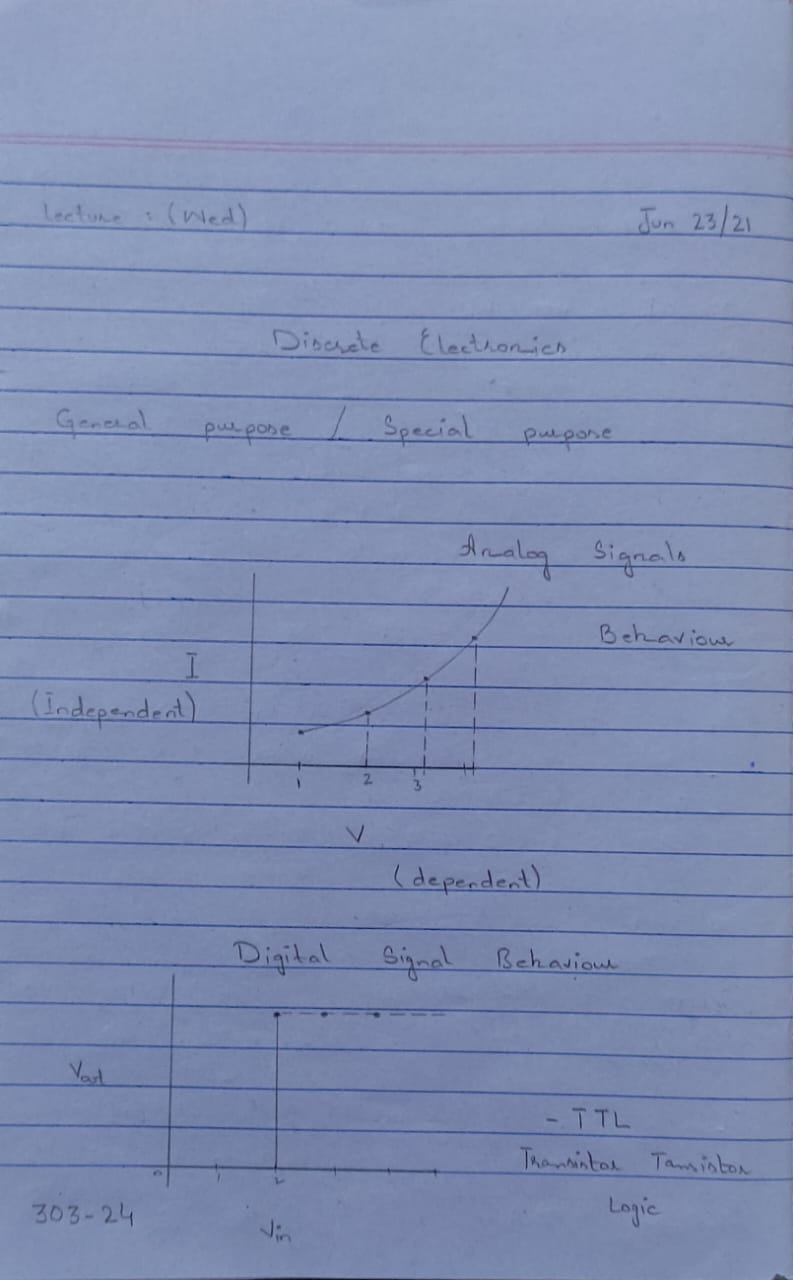 Lecture : (Wed) Jun 23/21
Discrete Electronics
General purpose / Special purpose
Analog Signals
Behaviour
I
(Independent)
1 2 3
V
(dependent)
Digital Signal Behaviour
Vout
- TTL
Transistor Tansistor
Logic
0 1 2
Vin
303-24